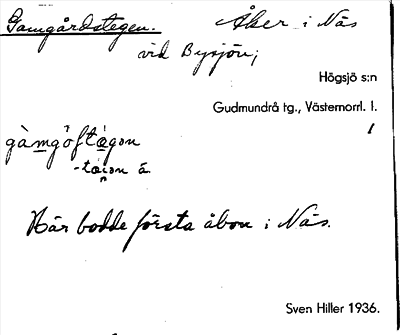 Gamgårdstegen. Åker i Näs
vid Bysjön;
Högsjö s:n
Gudmundrå tg., Västernorrl. l.
1
gàmgöftägon
-täion ä
Här bodde första åbon i Näs.
Sven Hiller 1936.